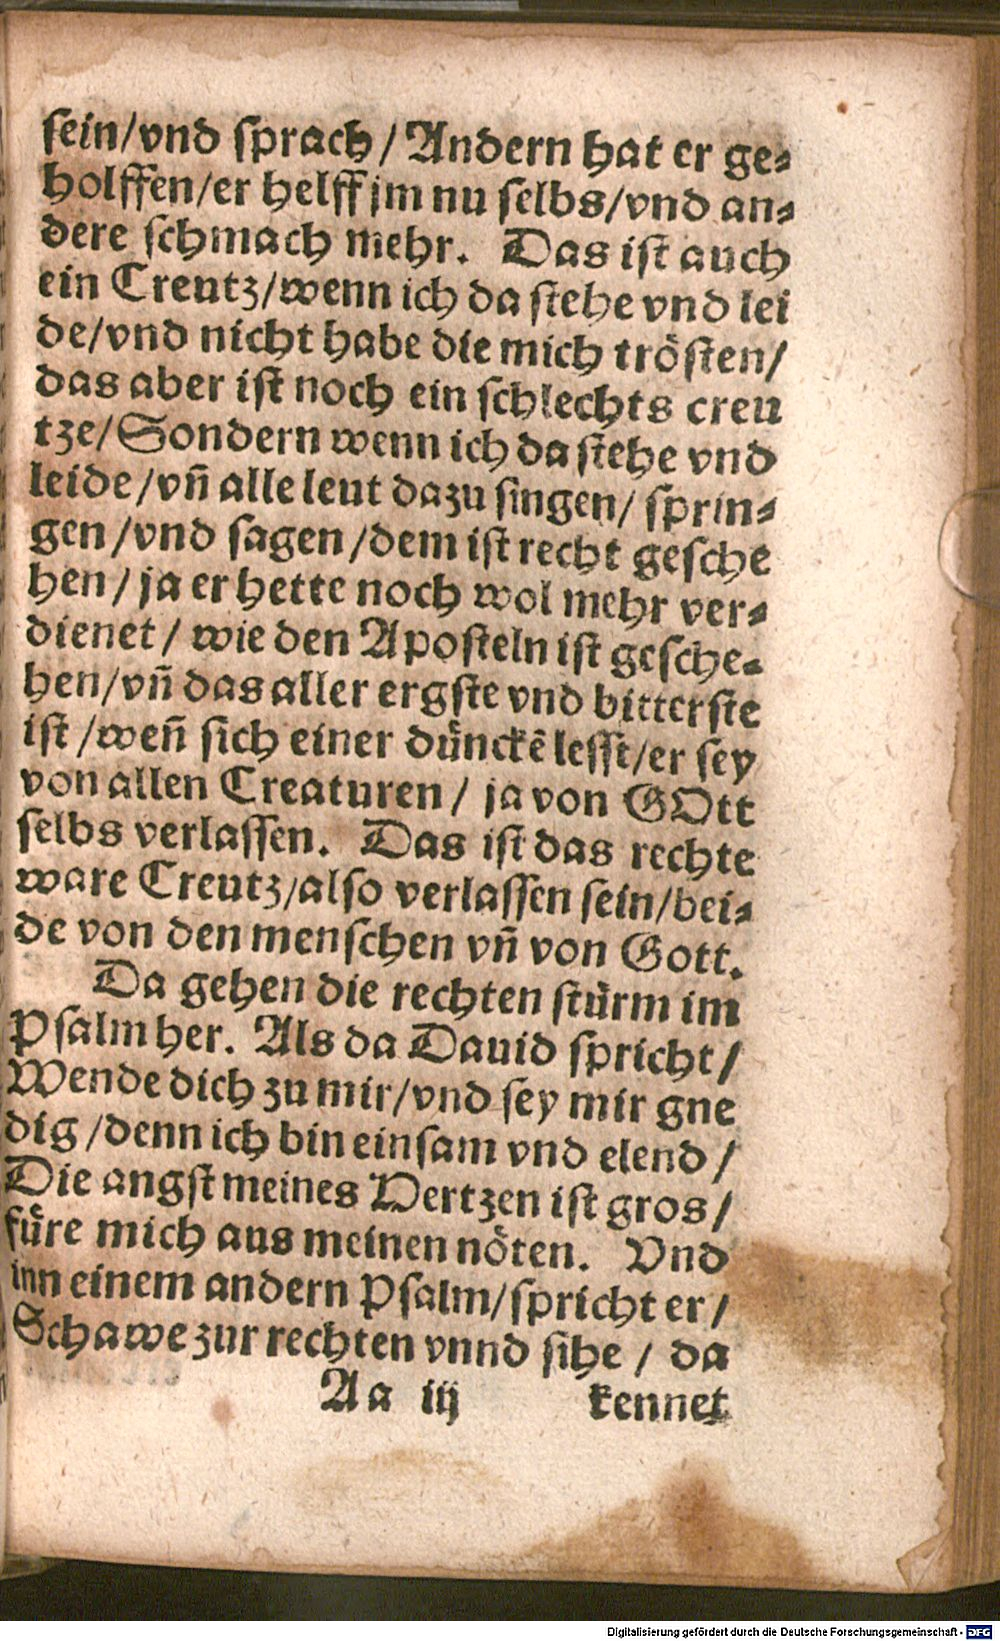 sein/vnd sprach/Andern hat er ge⸗
holffen/er helff jm nu selbs/vnd an⸗
dere schmach mehr. Das ist auch
ein Creutz/wenn ich da stehe vnd lei
de/vnd nicht habe die mich trösten/
das aber ist noch ein schlechts creu
tze/Sondern wenn ich da stehe vnd
leide/vñ alle leut dazu singen/sprin⸗
gen/vnd sagen/dem ist recht gesche
hen/ja er hette noch wol mehr ver⸗
dienet/wie den Aposteln ist gesche⸗
hen/vñ das aller ergste vnd bitterste
ist/weñ sich einer dünckē lesst/er sey
von allen Creaturen/ja von GOtt
selbs verlassen. Das ist das rechte
ware Creutz/also verlassen sein/bei⸗
de von den menschen vñ von Gott.
Da gehen die rechten stürm im
Psalm her. Als da Dauid spricht/
Wende dich zu mir/vnd sey mir gne
dig/denn ich bin einsam vnd elend/
Die angst meines Hertzen ist gros/
füre mich aus meinen nöten. Vnd
inn einem andern Psalm/spricht er/
Schawe zur rechten vnnd sihe/da
Aa iij kennet
Digitalisierung gefördert durch die Deutsche Forschungsgemeinschaft - DFG